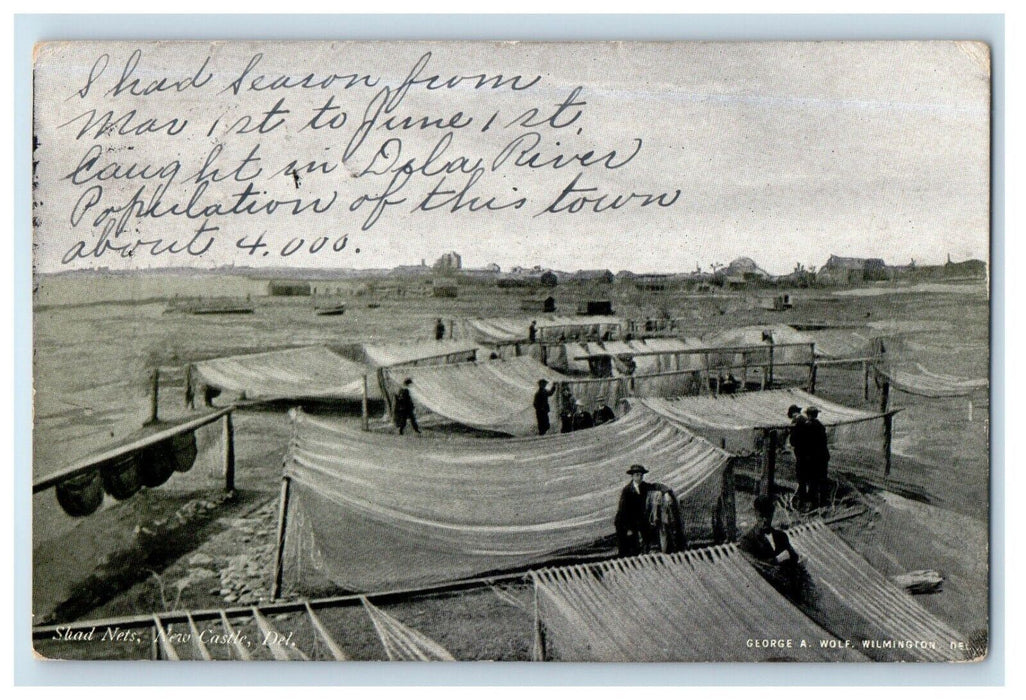 Shad Season from
Mar 1st to June 1st.
Caught in Dela, River
Population of this town
about 4.000.
Shad Nets, New Castle, Del.
GEORGE A. WOLF, WILMINGTON, DEL